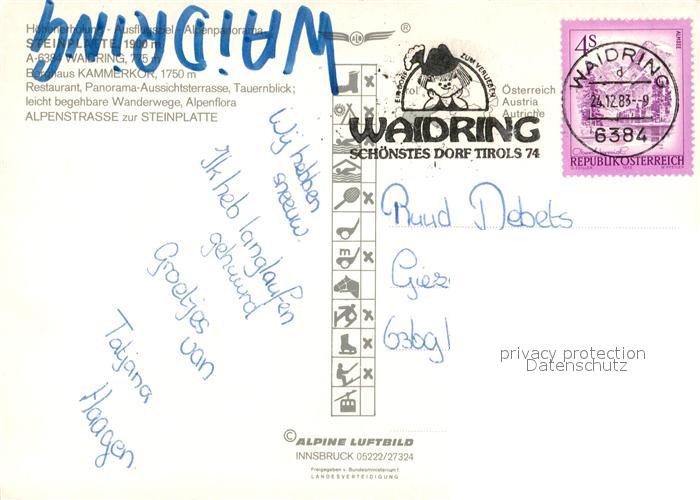 WAIDRING
Höhenerholung - Ausflugsziel - Alpenpanorama
STEINPLATTE, 1900 m
A-6384 WAIDRING, 775 m
Berghaus KAMMERKÖR, 1750 m
Restaurant, Panorama-Aussichtsterrasse, Tauernblick;
leicht begehbare Wanderwege, Alpenflora
ALPENSTRASSE zur STEINPLATTE
EIN DORF ZUM VERLIEBEN
WAIDRING
SCHÖNSTES DORF TIROLS 74
Österreich
Austria
Autriche
ALMSEE
4S
REPUBLIK ÖSTERREICH
WAIDRING
a
24.12.83-9
6384
Wij hebben
sneeuw.
Ik heb langlaufen
gehuurd
Groetjes van
Tatjana
Haagen.
Ruud Debets
Giez
6369
privacy protection
Datenschutz
© ALPINE LUFTBILD
INNSBRUCK 05222/27324
Freigegeben v. Bundesministerium f.
LANDESVERTEIDIGUNG